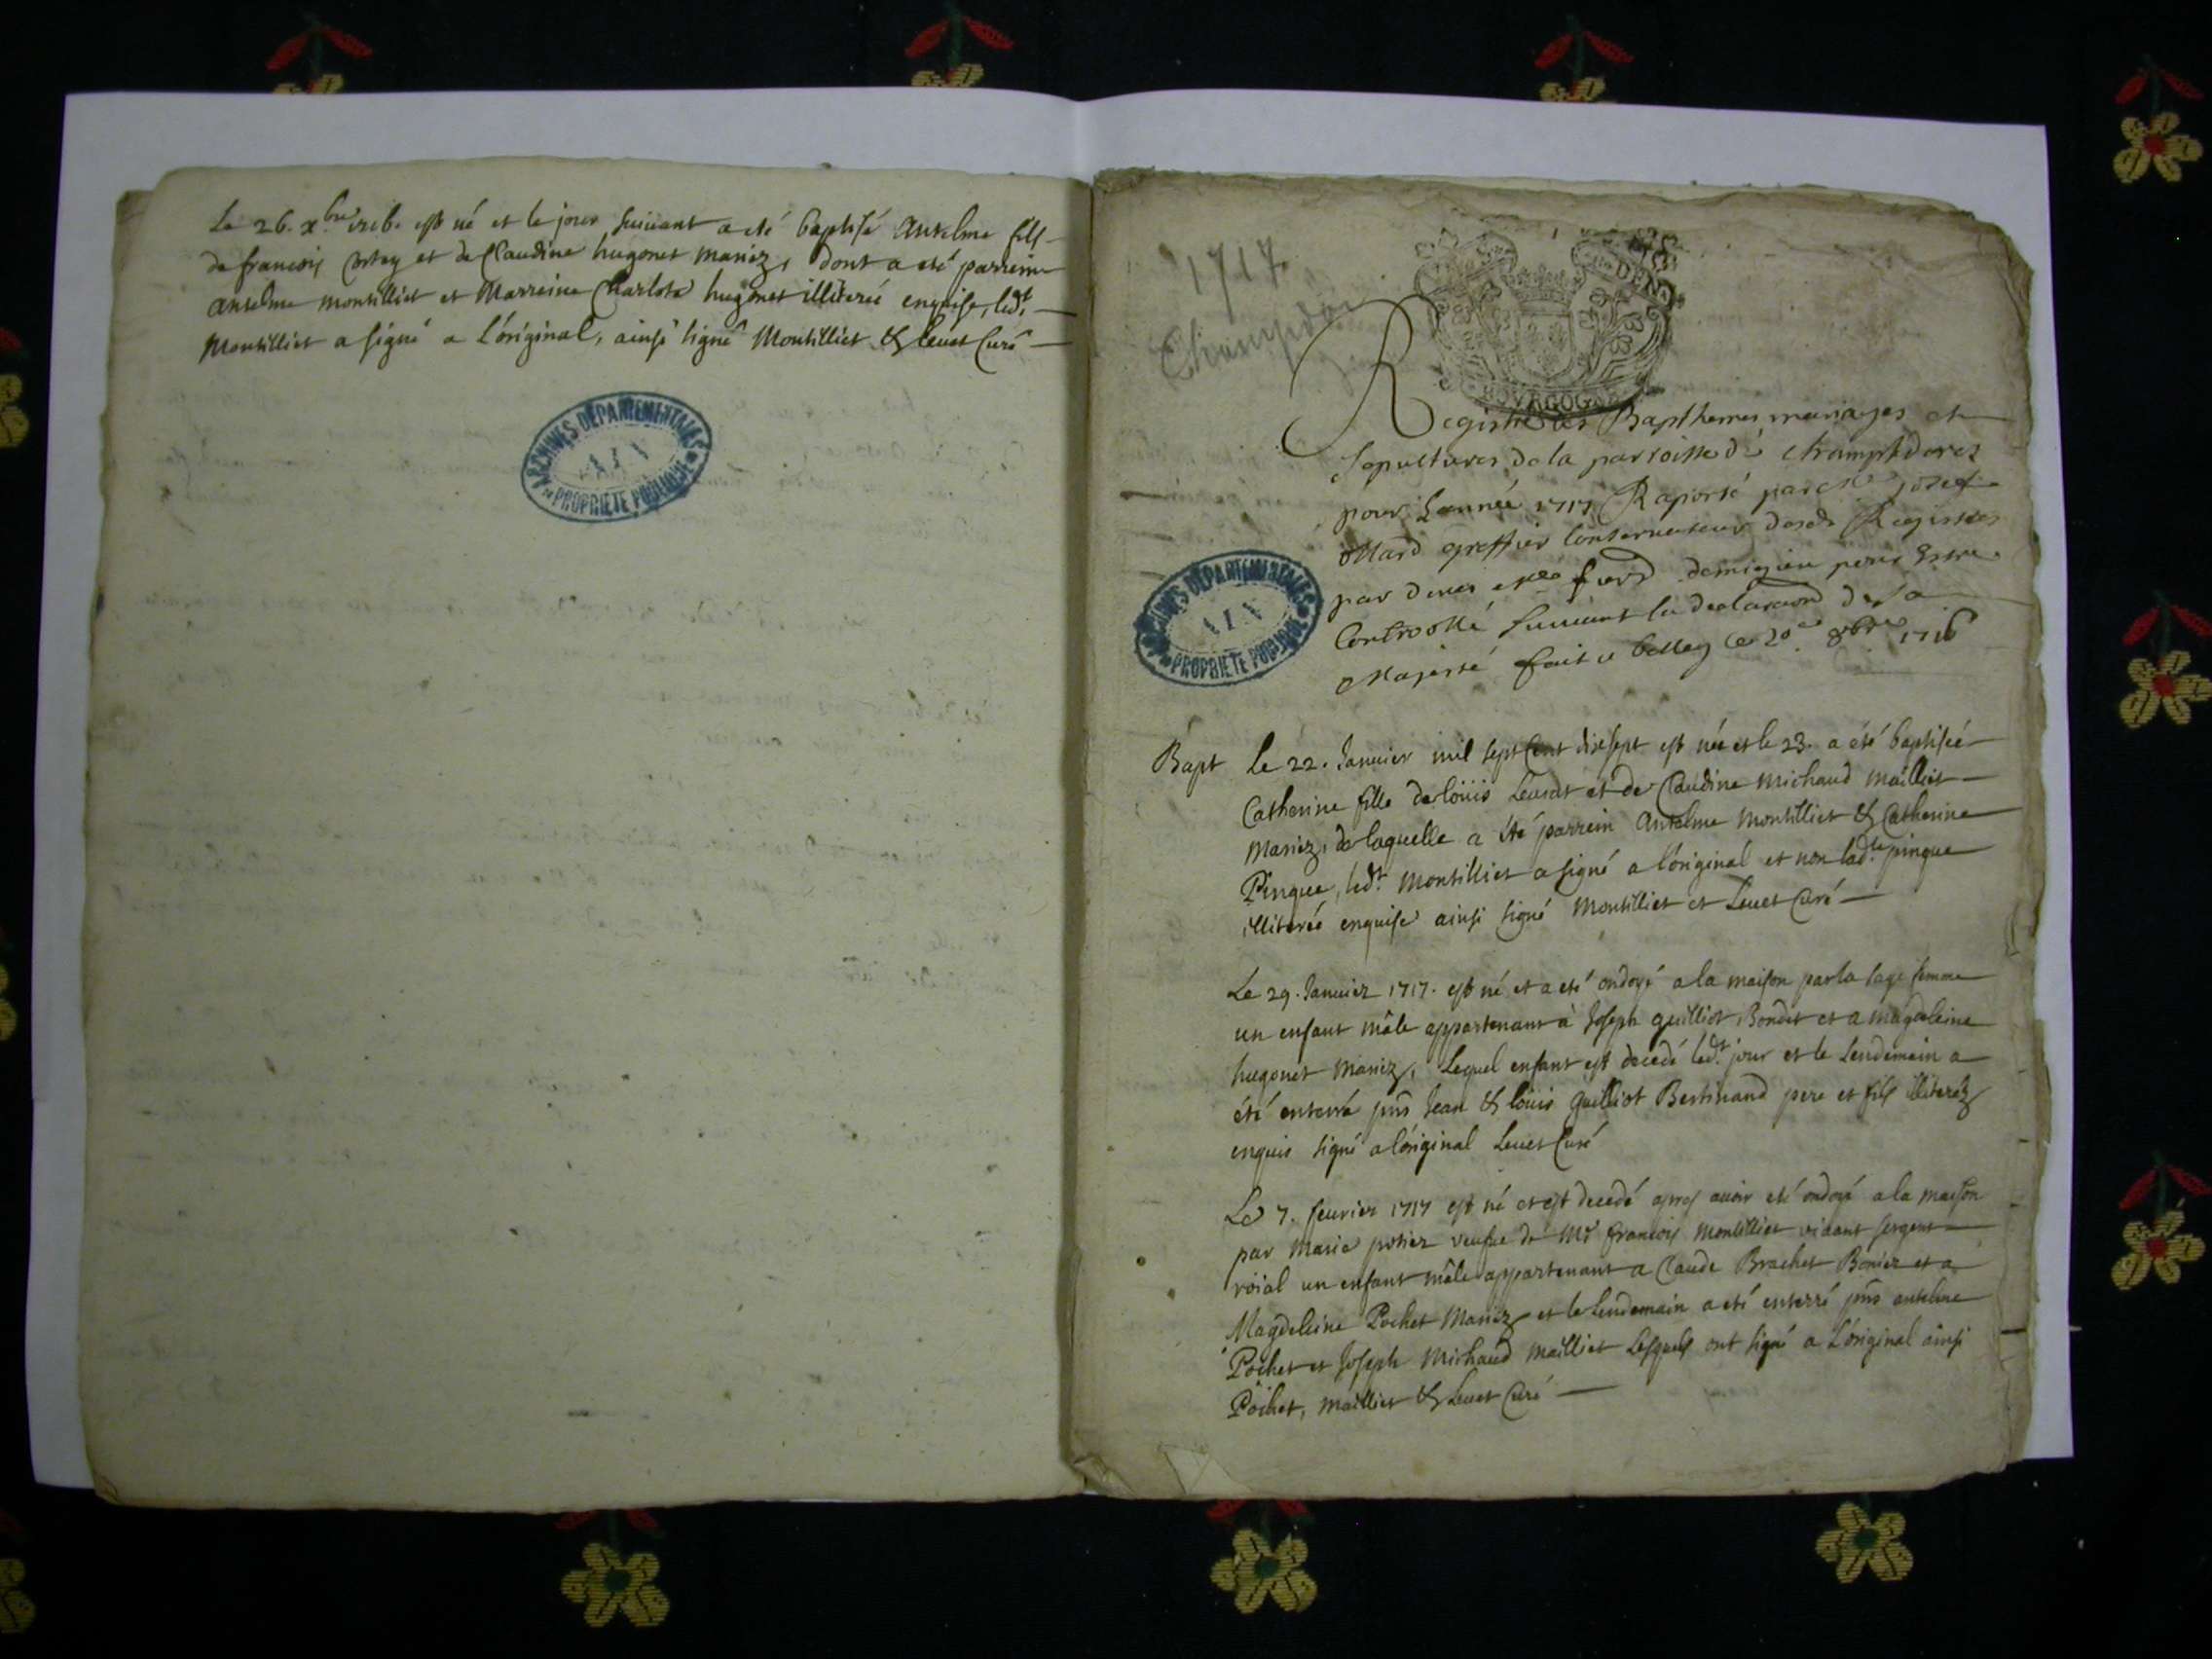 Le 26. xbre 1716. est né et le jour suivant a eté baptisé Anselme fils
de francois Cortey et de Claudine hugonet mariez, dont a eté parrein
anselme montilliet et Marreine Charlote hugonet illiterée enquise, led.t
Montilliet a signé a l'original, ainsi signé Montilliet & Levet Curé
ARCHIVES DÉPARTEMENTALES
AIN
PROPRIÉTÉ PUBLIQUE
1717
Champdor
DEN
BOVRGOGNE
Registre des Bapthemes mariages et
Sepultures de la parroisse de Champtdorez
pour Lannée 1717 Raporté par Me josef
ollard greffier Conservateur desds Registres
par devers demigieu pour Estre
Controollé suivant la declaraond de Sa
Majesté fait a belley ce 20e 8bre 1716
ARCHIVES DÉPARTEMENTALES
AIN
PROPRIÉTÉ PUBLIQUE
Bapt Le 22. Janvier mil sept Cent dixsept est née et le 23. a été baptisée
Catherine fille de loüis Levrat et de Claudine Michaud Mailliet
Mariez, de laquelle a été parrein Anselme Montilliet & Catherine
Pingue, led.t Montilliet a signé a l'original et non lad.te pingue
illiterée enquise ainsi signé Montilliet et Levet Curé
Le 29. Janvier 1717. est né et a eté ondoyé a la maison par la sage femme
un enfant mâle appartenant à Joseph guilliot Bondet et a magdeleine
hugonet Mariez, Lequel enfant est decedé led.t jour et le Lendemain a
été enterré pns Jean & loüis guilliot Bertinand pere et fils illiterés
enquis signé a l'original Levet Curé
Le 7. fevrier 1717 est né et est decedé apres avoir eté ondoyé a la maison
par Marie potier veufve de Mr francois Montilliet vivant sergent
roïal un enfant mâle appartenant a Claude Brachet Bonier et a
Magdeleine Pochet Mariez et le lendemain a eté enterré pns anselme
Pochet et Joseph Michaud Mailliet Lesquels ont signé a L'original ainsi
Pochet, Mailliet & Levet Curé